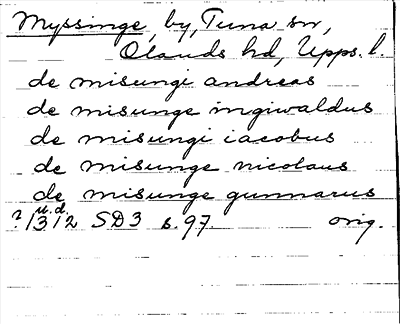 Myssinge, by, Tuna sn,
Olands hd, Upps. l.
de misungi andreas
de misunge ingiwaldus
de misungi iacobus
de misunge nicolaus
de misunge gunnarus
u.d.
? 1312 SD3 s. 97. orig.